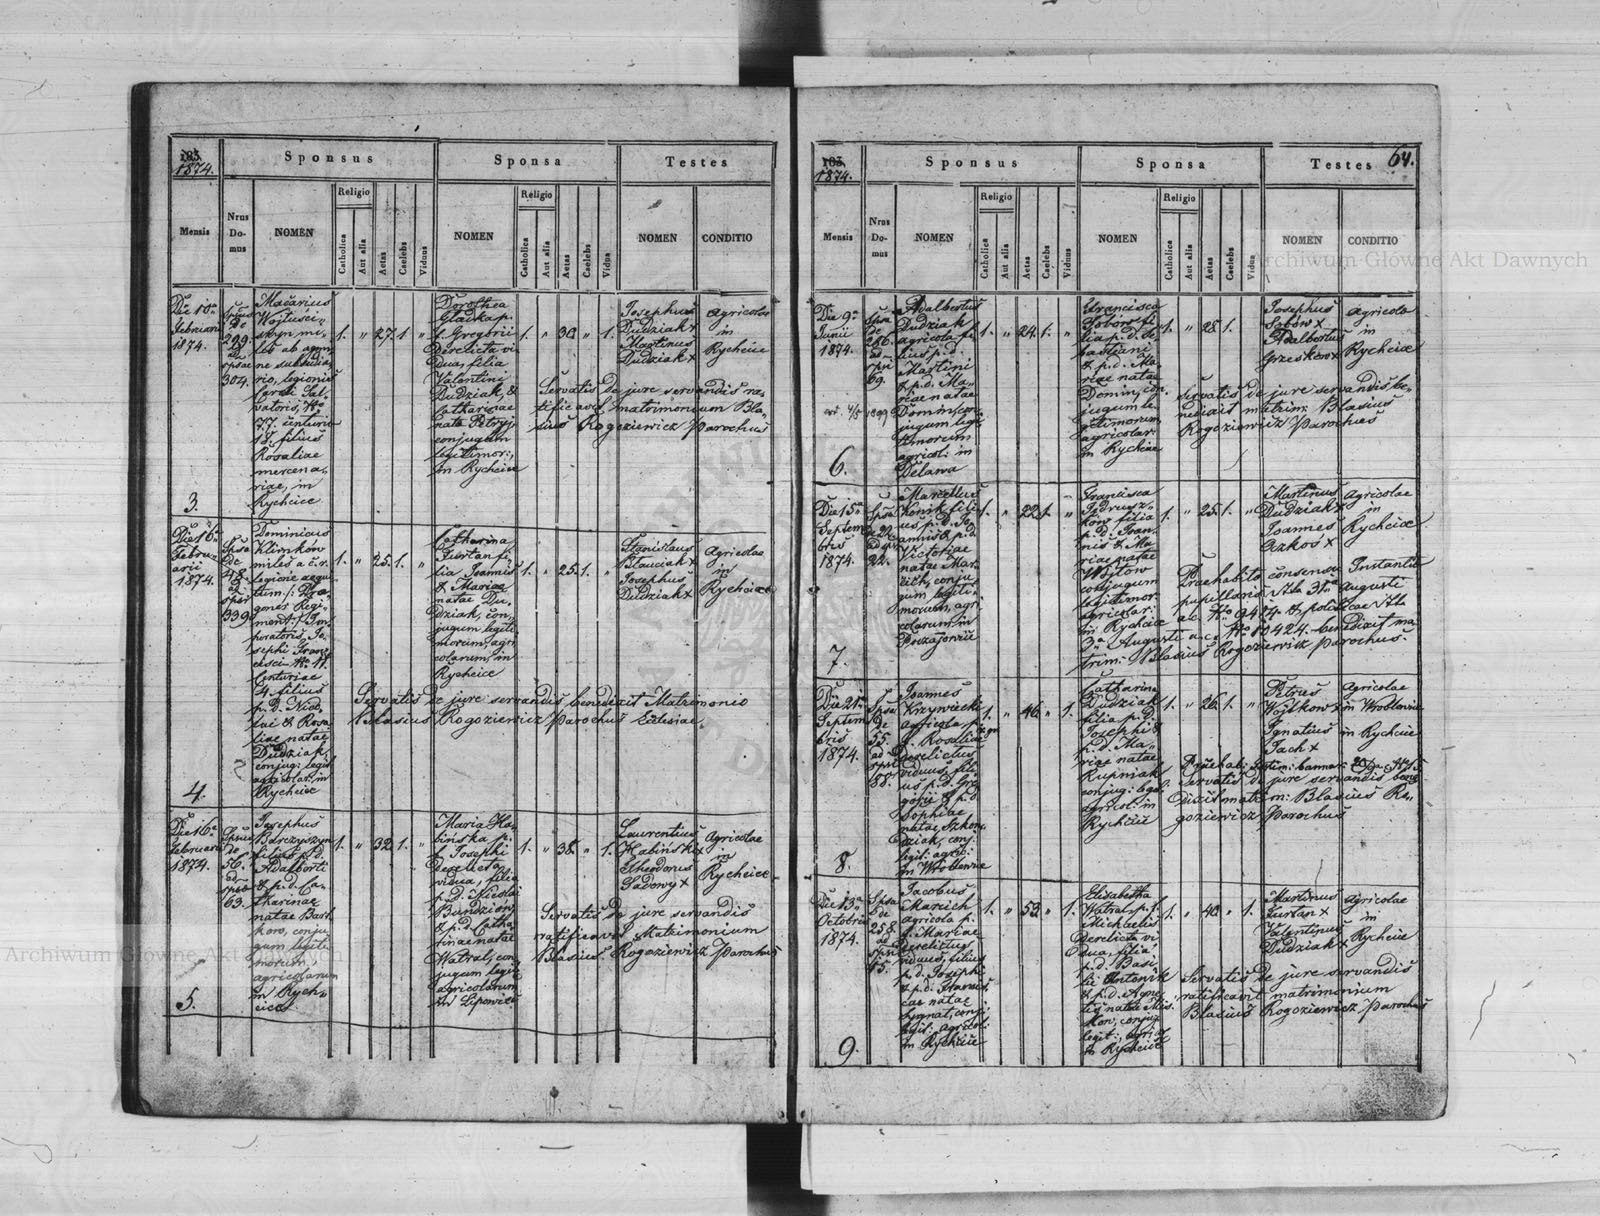 183
1874.
Sponsus
Sponsa
Testes
Mensis
Nrus
Do-
mus
NOMEN
Religio
Catholica
Aut alia
Aetas
Caelebs
Viduus
NOMEN
Religio
Catholica
Aut alia
Aetas
Caelebs
Vidua
NOMEN
CONDITIO
Die 10a
Februarii
1874.
3.
Spsus
de
299.
ad
spsae
304.
Macarius
Wojtuści-
szyn mi-
les ab agmi-
ne subsidia-
rio, legionis
Sal-
vatoris, No
77. centuriae
18. filius
Rosaliae
mercena-
riae, in
Rychcice
1. " 27. 1. "
Dorothea
Gladka p.
f. Gregorii
Derelicta vi-
dua, filia
Valentini
Dudziak, &
Catharinae
nata
conjugum
legitimor:,
in Rychcice
1. " 30. " 1.
Josephus
Dudziak +
Martinus
Dudziak +
Agricolae
in
Rychcice
Servatis de jure servandis ra-
tificavit matrimonium Bla-
sius Rogoziewicz Parochus
Die 16a
Febru-
arii
1874.
4.
Spsa
de
48.
ad
spsi
339.
Dominicus
Klimków
miles a c. r.
legione equi-
tum /: Dra-
goner Regi-
ment :/ Im-
peratoris, Jo-
sephi Fran-
cisci No 11.
Centuriae
4 filius
p. D. Nico-
lai & Rosa-
liae natae
Dudziak,
conjug: legit.
agricolar: in
Rychcice
1. " 25. 1. "
Catharina
Furtan fi-
lia Joannis
& Mariae
natae Du-
dziak, con-
jugum legiti-
morum, agri-
colarum, in
Rychcice
1. " 25. 1. "
Stanislaus
Blauciak +
Josephus
Dudziak +
Agricolae
in
Rychcice
Servatis de jure servandis benedixit Matrimonio
Blasius Rogoziewicz Parochus Eclesiae
Die 16a
Februarii
1874.
5.
Spsae
de
56.
ad
spsi
63.
Josephus
Barczyszyn
filius p. d.
Adalberti
& p. d. Ca-
tharinae
natae Bart-
kow, conju-
gum legiti-
morum,
agricolarum
in Rych-
cice
1. " 32. 1. "
Maria Ha-
bińska p.
f. Josephi
Derelicta
vidua, filia
p. D. Nicolai
Bundzion,
& p. d. Catha-
rinae natae
Watral, con-
jugum legit:
agricolarum
in Lipowiec
1. " 38. " 1.
Laurentius
Habiński +
Theodorus
Sadowy +
Agricolae
in
Rychcice
Servatis de jure servandis
ratificavit Matrimonium
Blasius Rogoziewicz Parochus
183
1874.
Sponsus
Sponsa
Testes
64.
Mensis
Nrus
Do-
mus
NOMEN
Religio
Catholica
Aut alia
Aetas
Caelebs
Viduus
NOMEN
Religio
Catholica
Aut alia
Aetas
Caelebs
Vidua
NOMEN
CONDITIO
Archiwum Główne Akt Dawnych
Die 9a
Junii
1874.
6.
Spsa
de
286.
ad
spsi
69.
Adalbertus
Dudziak
agricola fi-
lius p. d.
Martini
& p. d. Ma-
riae natae
Domin, con-
jugum legi-
timorum
agricol: in
Delawa
1. " 24. 1. "
Francisca
Sobow fi-
lia p. d. Se-
bastiani
& p. d. Ma-
riae natae
Domin, con-
jugum le-
gitimorum,
agricolar:
in Rychcice
1. " 28. 1.
Josephus
Sobów +
Adalbertus
Grzeskow +
Agricolae
in
Rychcice
Servatis de jure servandis be-
nedixit matrim: Blasius
Rogoziewicz Parochus
Die 15a
Septem-
bris
1874.
7.
Spsa
de 22.
22.
Marcellus
Konik fili-
us p. d. Jo-
annis & p. d.
Victoriae
natae Mar-
cich, conju-
gum legiti-
morum, agri-
colarum in
1. " 22. 1. "
Francisca
Jędrusz-
ków filia
p. d. Joan-
nis & Ma-
riae natae
Wojtow
conjugum
legitimor:
agricolar:
in Rychcice
1. " 25. 1. "
Martinus
Dudziak +
Joannes
Ozkoś +
Agricolae
in
Rychcice
Praehabito consensu Instantiae
pupillaris ddto 31a Augusti
a. c. No 9474 & politicae ddto
3a Augusti a. c. No 10424. benedixit ma-
trim: Blasius Rogoziewicz Parochus.
Die 21a
Septem-
bris
1874.
8.
Spsa
de
55.
ad
spsi
80.
Joannes
Krzywiecki
agricola p.
f. Rosaliae
derelictus
viduus, fili-
us p. d. Gre-
gorii & p. d.
Sophiae
natae Szkon-
dziak, conj.
legit: agric:
in Wroblowice
1. " 46. " 1.
Catharina
Dudziak
filia p. D.
Josephi &
p. d. Ma-
riae natae
Rupniak
conjug: legit:
agricol: in
Rychcice
1. " 26. 1. "
Petrus
Wojtkow +
Ignatius
Jach +
Agricolae
in Wroblowice
in Rychcice
Servatis de jure servandis bene-
dixit matrim: Blasius Ro-
goziewicz Parochus
Die 13a
Octobris
1874.
9.
Spsa
de
258.
ad
spsi
45.
Jacobus
Marcich
agricola p.
f. Mariae
derelictus
viduus, filius
p. d. Josephi
& p. d. Francis-
cae natae
Hygnat, conj:
legit: agricol:
in Rychcice
1. " 53. " 1.
Elisabetha
Watral p. f.
Michaelis
derelicta vi-
dua, filia
p. d. Basi-
lii Antonik
& p. d. Agne-
tis natae Mis-
kow, conjug.
legit:, agric:
in Rychcice
1. " 40. " 1.
Martinus
Furtan +
Valentinus
Dudziak +
Agricolae
in
Rychcice
Servatis de jure servandis
ratificavit matrimonium
Blasius Rogoziewicz Parochus
Archiwum Główne Akt Dawnych